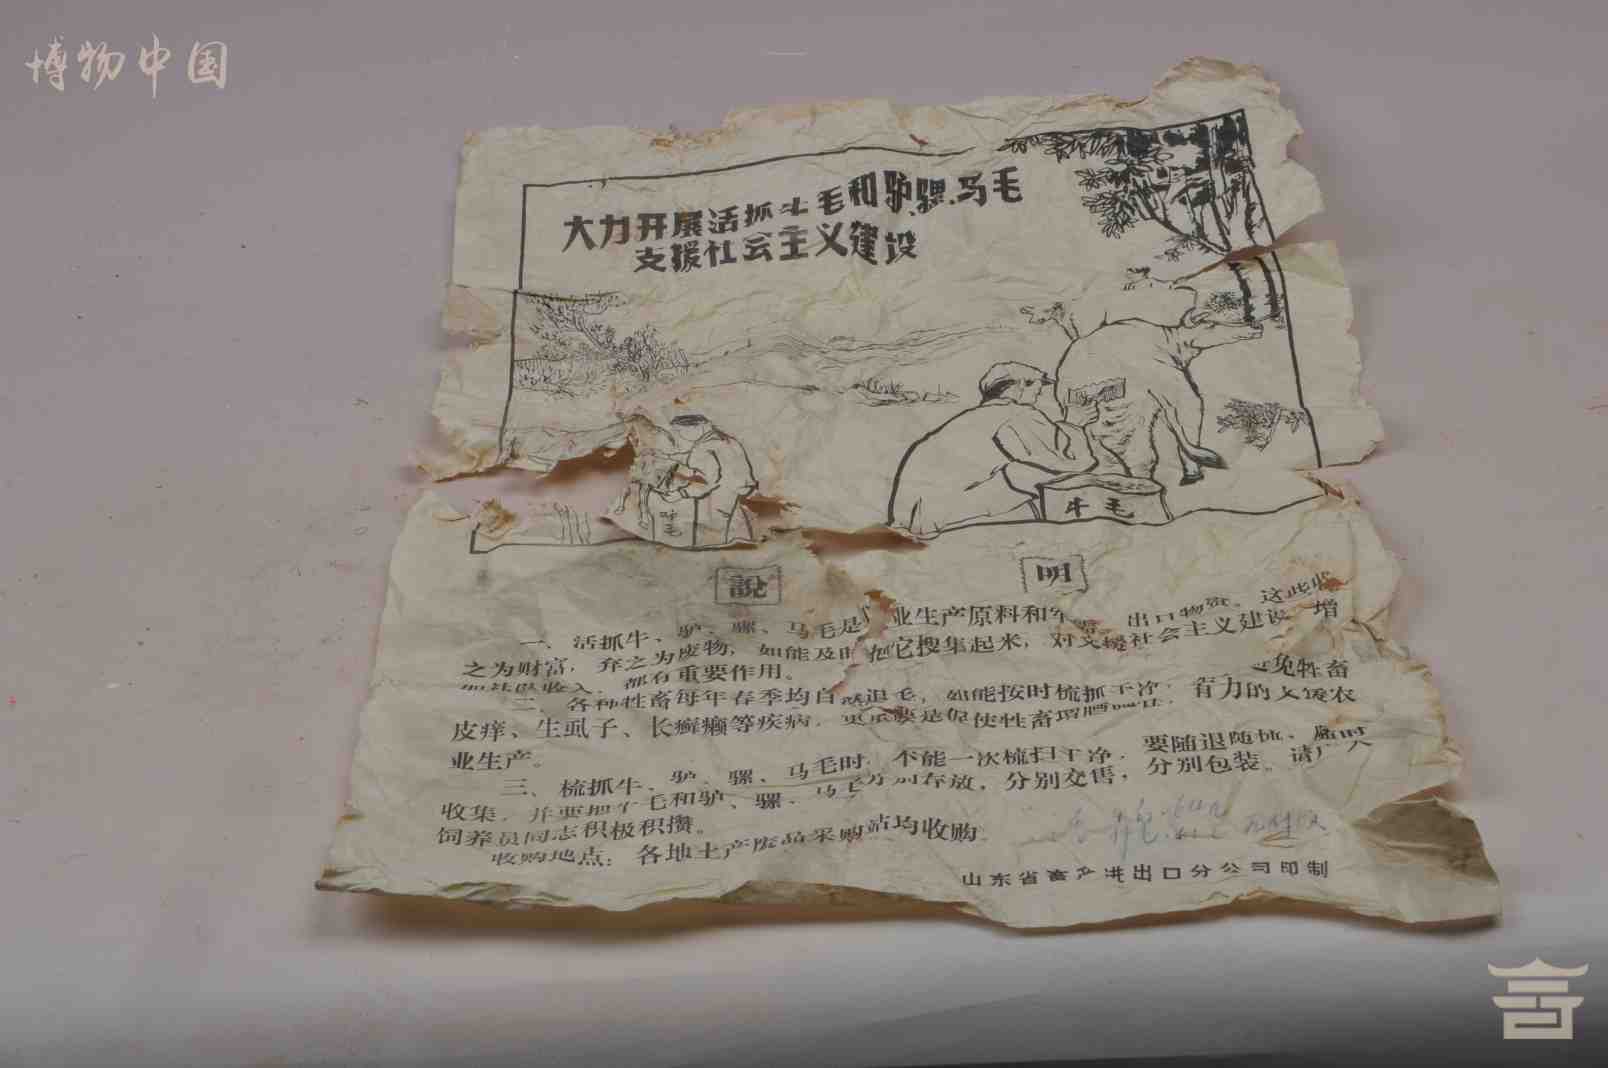 博物中国
大力开展活抓牛毛和驴.骡.马毛
支援社会主义建设
驴毛
牛毛
說 明
一、活抓牛、驴、骡、马毛是 业生产原料和军 出口物资。这些
之为财富，弃之为废物，如能及时把它搜集起来，对支援社会主义建设 增
收入，都有重要作用。
二、各种牲畜每年春季均自然退毛，如能按时梳抓干净， 避免牲畜
皮痒、生虱子、长癣癞等疾病，更重要是促使牲畜增膘 有力的支援农
业生产。
三、梳抓牛、驴、骡、马毛时，不能一次梳扫干净，要随退随梳、随时
收集，并要把牛毛和驴、骡、马毛分别存放，分别交售，分别包装。请广大
饲养员同志积极积攒。
收购地点：各地土产废品采购站均收购
山东省畜产进出口分公司印制